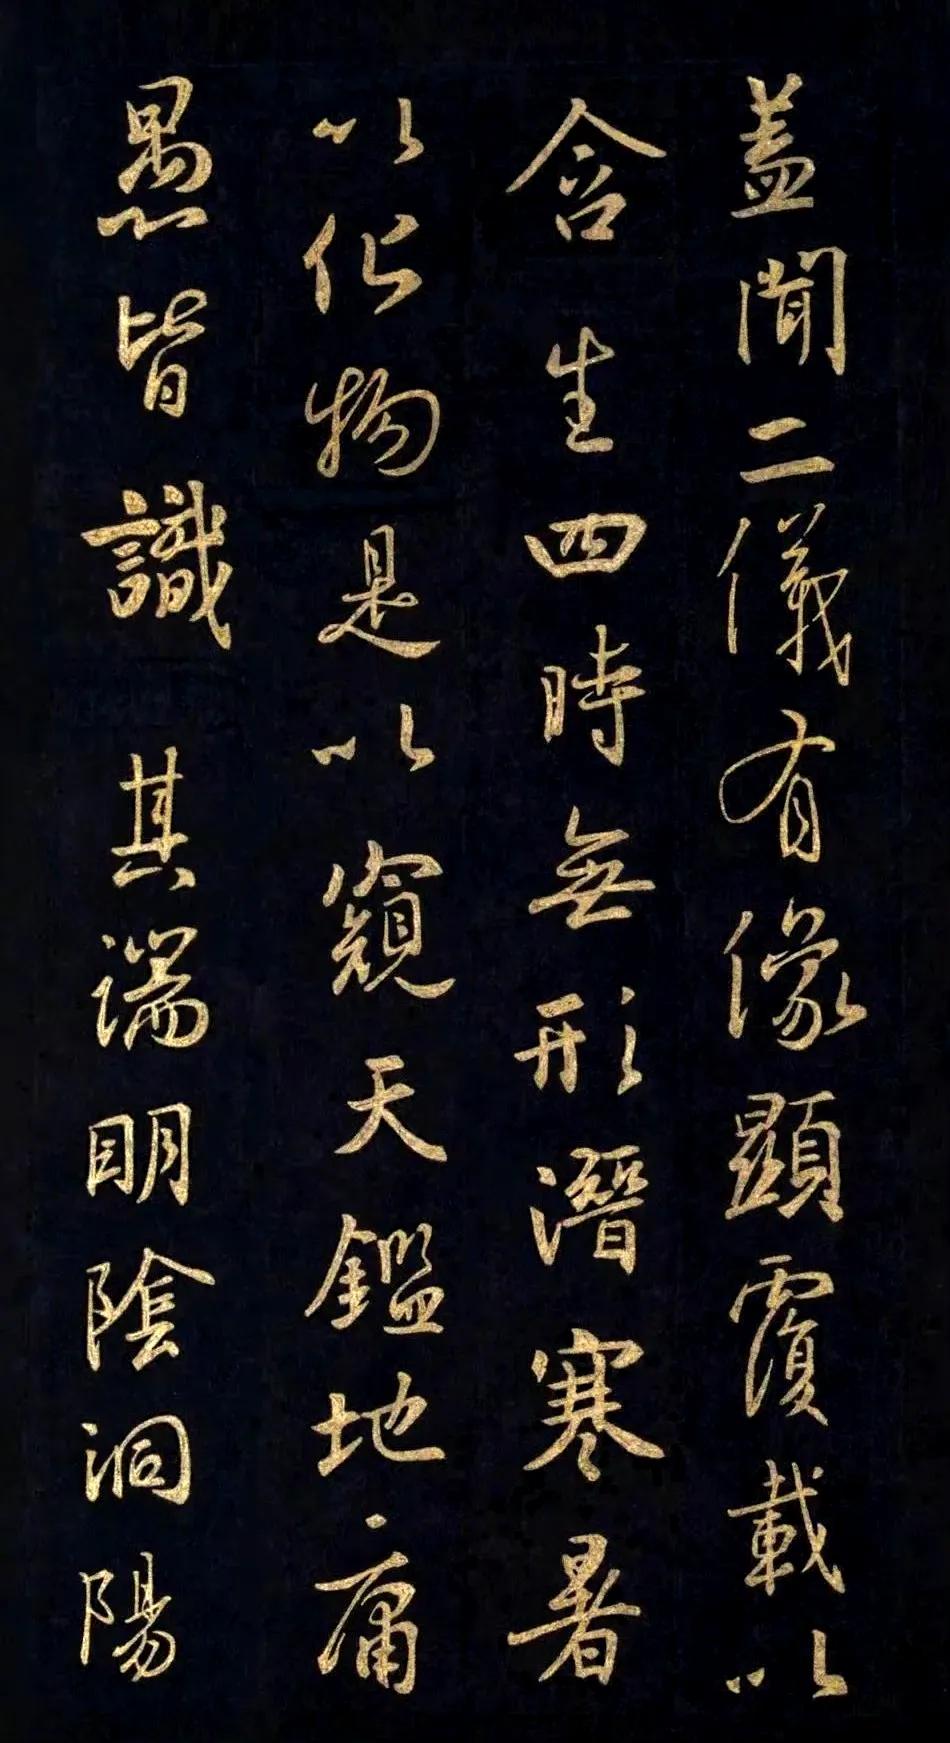 蓋聞二儀有像顯覆載以
含生四時無形潛寒暑
以化物是以窺天鑑地庸
愚皆識其端明陰洞陽